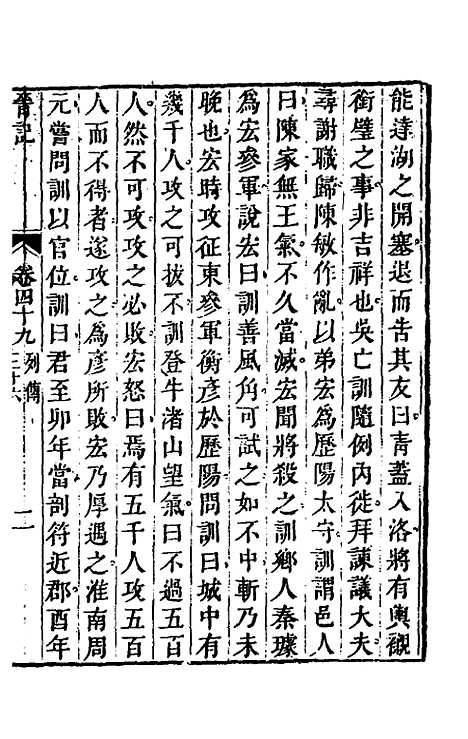 能達湖之開塞退而告其友曰青蓋入洛將有輿櫬
銜璧之事非吉祥也吳亡訓隨例內徙拜諫議大夫
尋謝職歸陳敏作亂以弟宏爲歷陽太守訓謂邑人
曰陳家無王氣不久當滅宏聞將殺之訓鄉人秦璩
爲宏參軍說宏曰訓善風角可試之如不中斬乃未
晚也宏時攻征東參軍衡彥於歷陽問訓曰城中有
幾千人攻之可拔不訓登牛渚山望氣曰不過五百
人然不可攻攻之必敗宏怒曰焉有五千人攻五百
人而不得者遂攻之爲彥所敗宏乃厚遇之淮南周
元嘗問訓以官位訓曰君至卯年當剖符近郡酉年
晉記
卷四十九 列傳三十六
二